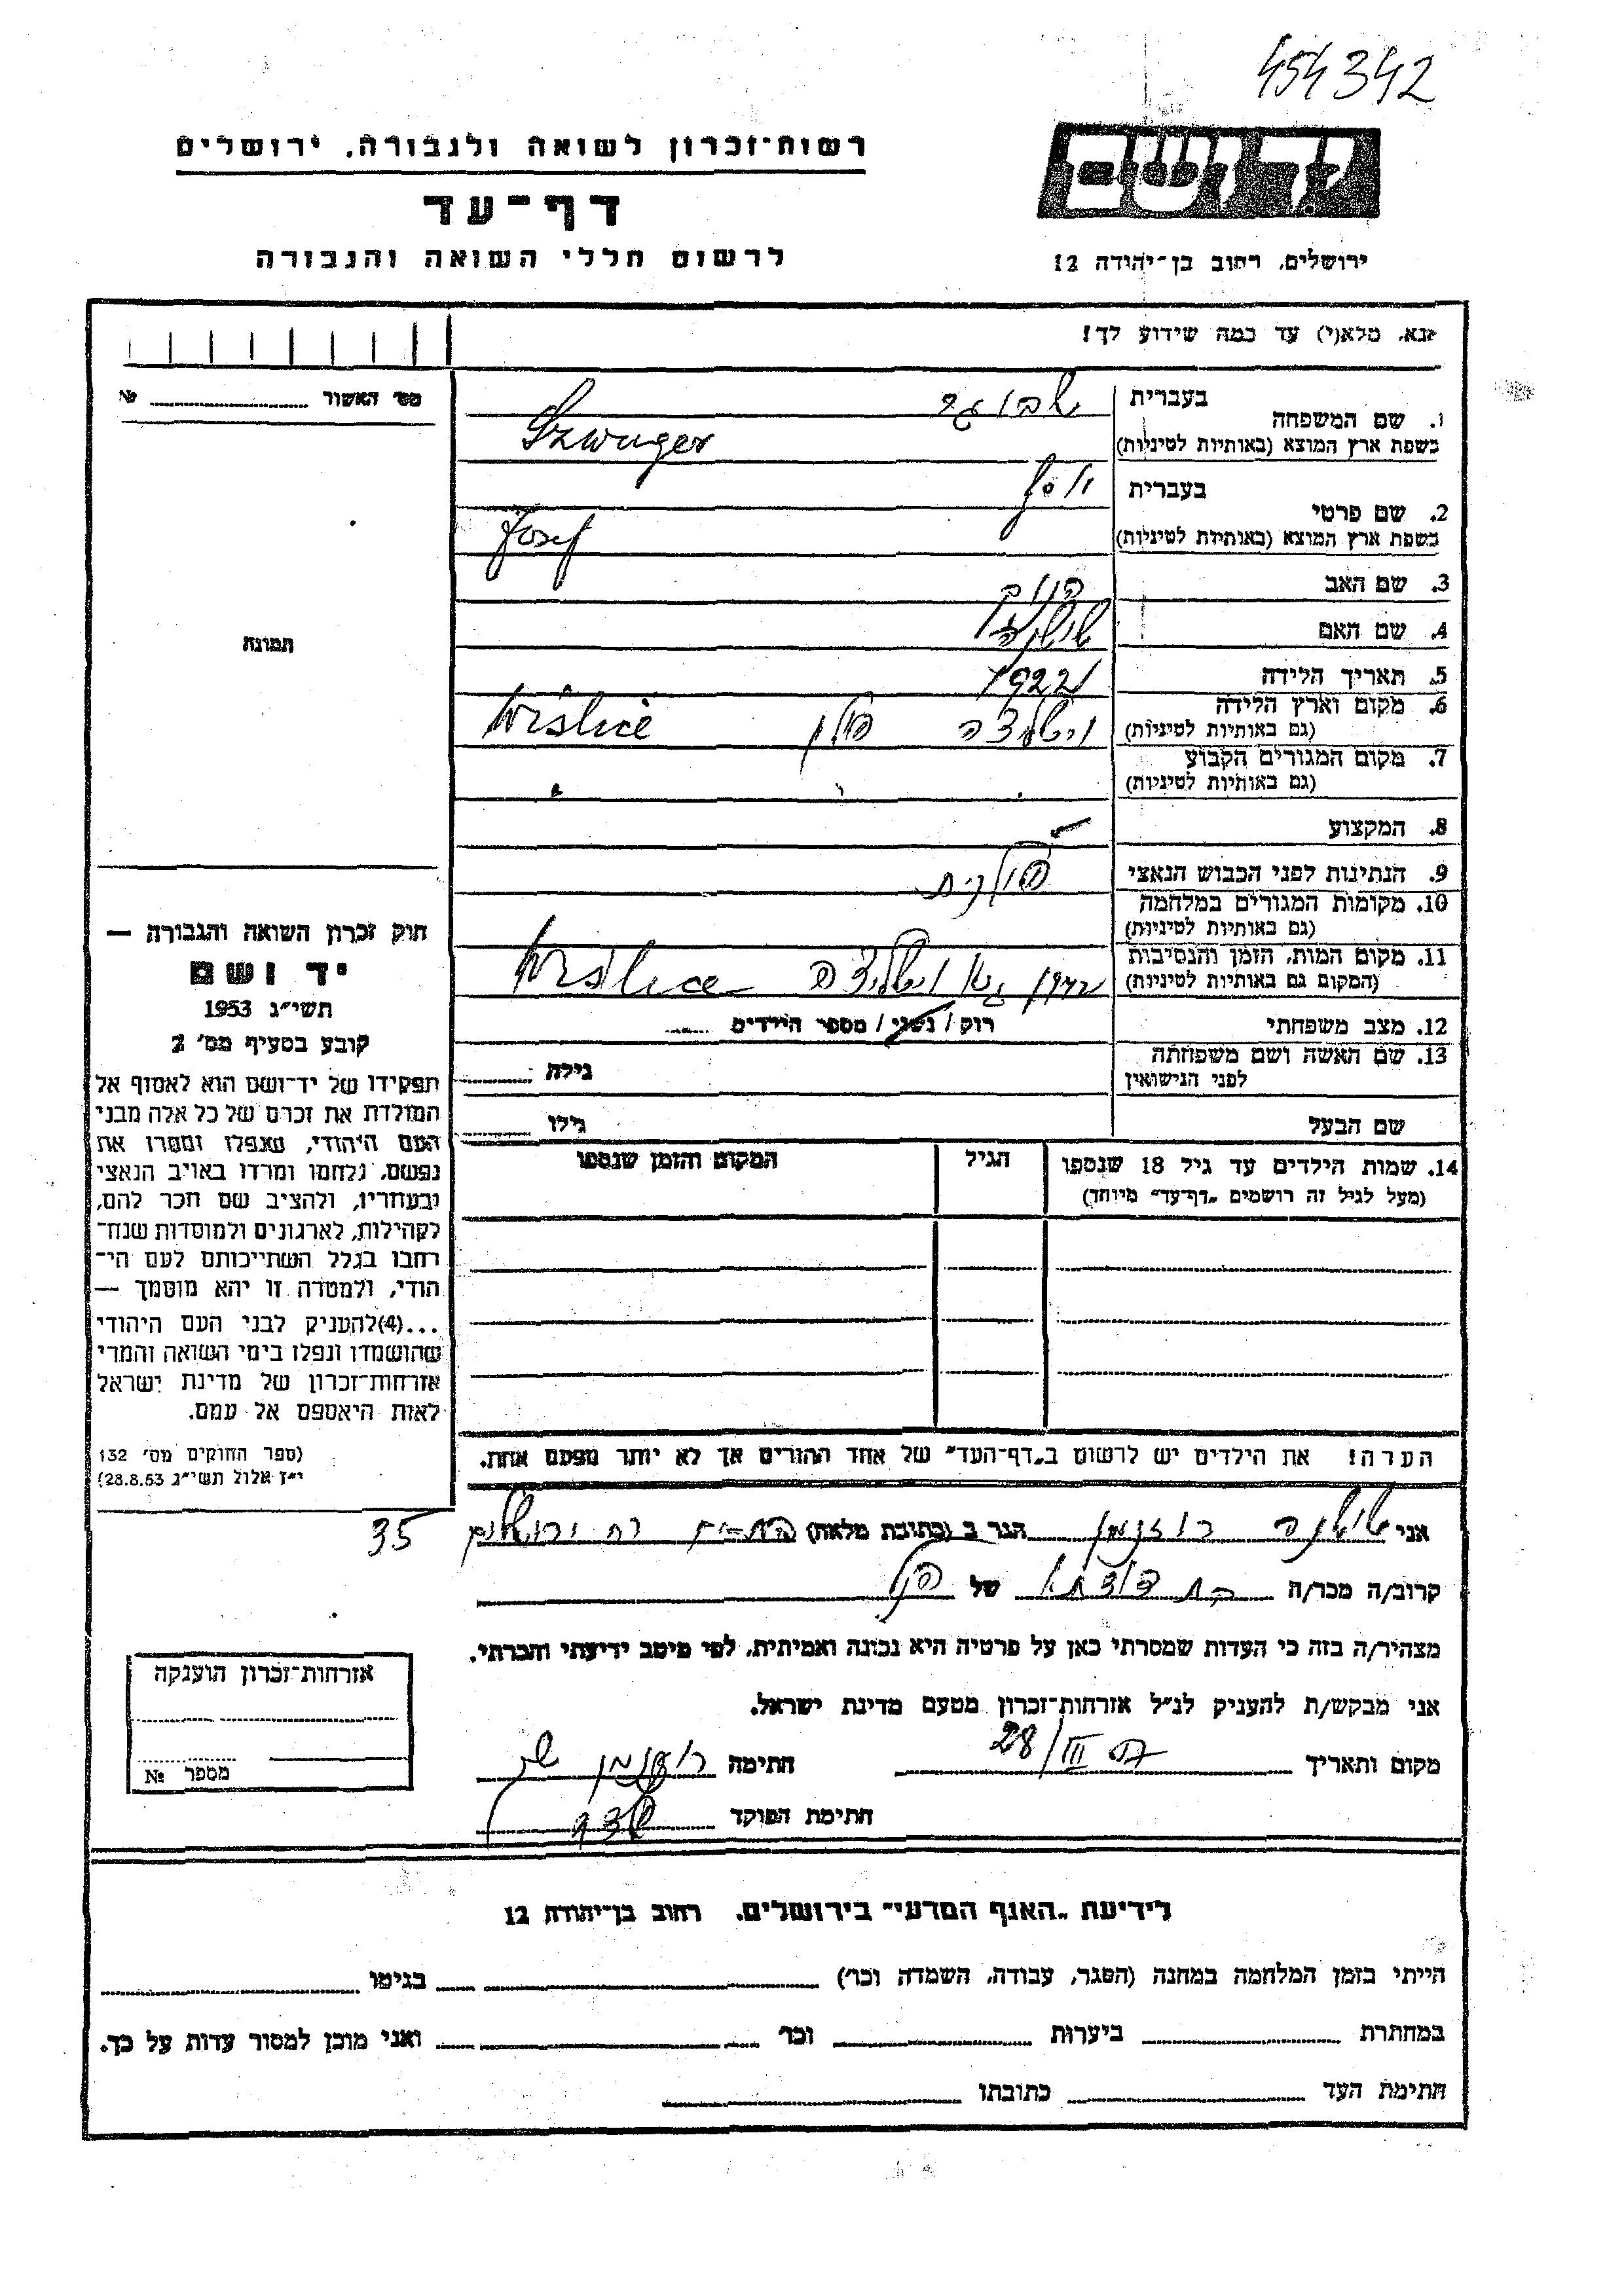 454342
רשות־זכרון לשואה ולגבורה, ירושלים
יד ושם
דף־עד
לרשום חללי השואה והגבורה
ירושלים, רחוב בן־יהודה 12
נא, מלא(י) עד כמה שידוע לך!
מס׳ האשור № 
1. שם המשפחה בעברית
בשפת ארץ המוצא (באותיות לטיניות) Szwuger
2. שם פרטי בעברית יוסף
בשפת ארץ המוצא (באותיות לטיניות) Josef
3. שם האב
4. שם האם
5. תאריך הלידה 1922
6. מקום וארץ הלידה (גם באותיות לטיניות) פולין Wiślice
7. מקום המגורים הקבוע (גם באותיות לטיניות)
8. המקצוע
9. הנתינות לפני הכבוש הנאצי פולנית
10. מקומות המגורים במלחמה (גם באותיות לטיניות)
11. מקום המות, הזמן והנסיבות (המקום גם באותיות לטיניות) Wiślice
12. מצב משפחתי רוק / נשוי / מספר הילדים
13. שם האשה ושם משפחתה לפני הנישואין גילה
שם הבעל גילו
14. שמות הילדים עד גיל 18 שנספו הגיל המקום והזמן שנספו
(מעל לגיל זה רושמים "דף־עד" מיוחד)
הערה! את הילדים יש לרשום ב"דף־העד" של אחד ההורים אך לא יותר מפעם אחת.
תמונה
חוק זכרון השואה והגבורה —
יד ושם
תשי״ג 1953
קובע בסעיף מס׳ 2
תפקידו של יד־ושם הוא לאסוף אל
המולדת את זכרם של כל אלה מבני
העם היהודי, שנפלו ומסרו את
נפשם, נלחמו ומרדו באויב הנאצי
ובעוזריו, ולהציב שם וזכר להם,
לקהילות, לארגונים ולמוסדות שנח־
רבו בגלל השתייכותם לעם הי־
הודי, ולמטרה זו יהא מוסמך —
...(4)להעניק לבני העם היהודי
שהושמדו ונפלו בימי השואה והמרי
אזרחות־זכרון של מדינת ישראל
לאות היאספם אל עמם.
(ספר החוקים מס׳ 132
י״ז אלול תשי״ג 28.8.53)
אני שושנה רוזנמן הגר ב (כתובת מלאה) רח ירושלים 35
קרוב/ה מכר/ה בת דודתו של הנל
מצהיר/ה בזה כי העדות שמסרתי כאן על פרטיה היא נכונה ואמיתית, לפי מיטב ידיעתי והכרתי.
אני מבקש/ת להעניק לנ״ל אזרחות־זכרון מטעם מדינת ישראל.
מקום ותאריך 28/III חתימה
חתימת הפוקד
אזרחות־זכרון הוענקה
מספר №
לידיעת "האגף המדעי" בירושלים, רחוב בן־יהודה 12
הייתי בזמן המלחמה במחנה (הסגר, עבודה, השמדה וכו׳) בגיטו
במחתרת ביערות וכו׳ ואני מוכן למסור עדות על כך.
חתימת העד כתובתו